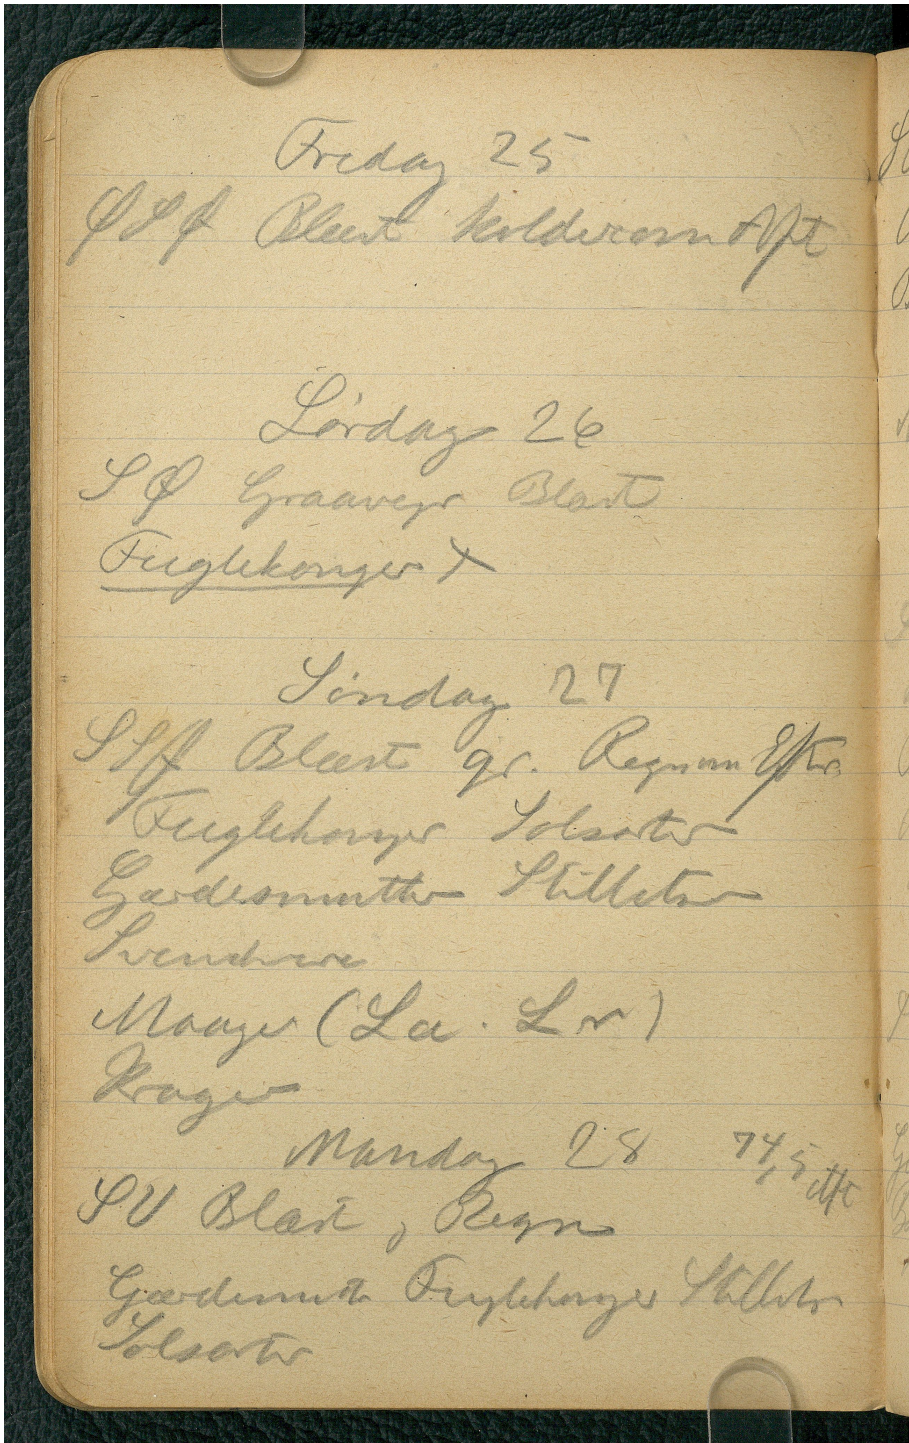 Fredag 25
ØSØ Blæst koldere om Aft
Lørdag 26
SØ Graavejr Blæst
Fuglekonger X
Søndag 27
SSØ Blæst gr. Regn om Eftr.
Fuglekonger Solsorter
Gærdesmutter Stillitser
Svenskere
Maager (La. Lr)
Krager
Mandag 28 74,5 Aft
SV Blæst, Regn
Gærdesmutt Fuglekonger Stillitser
Solsorter